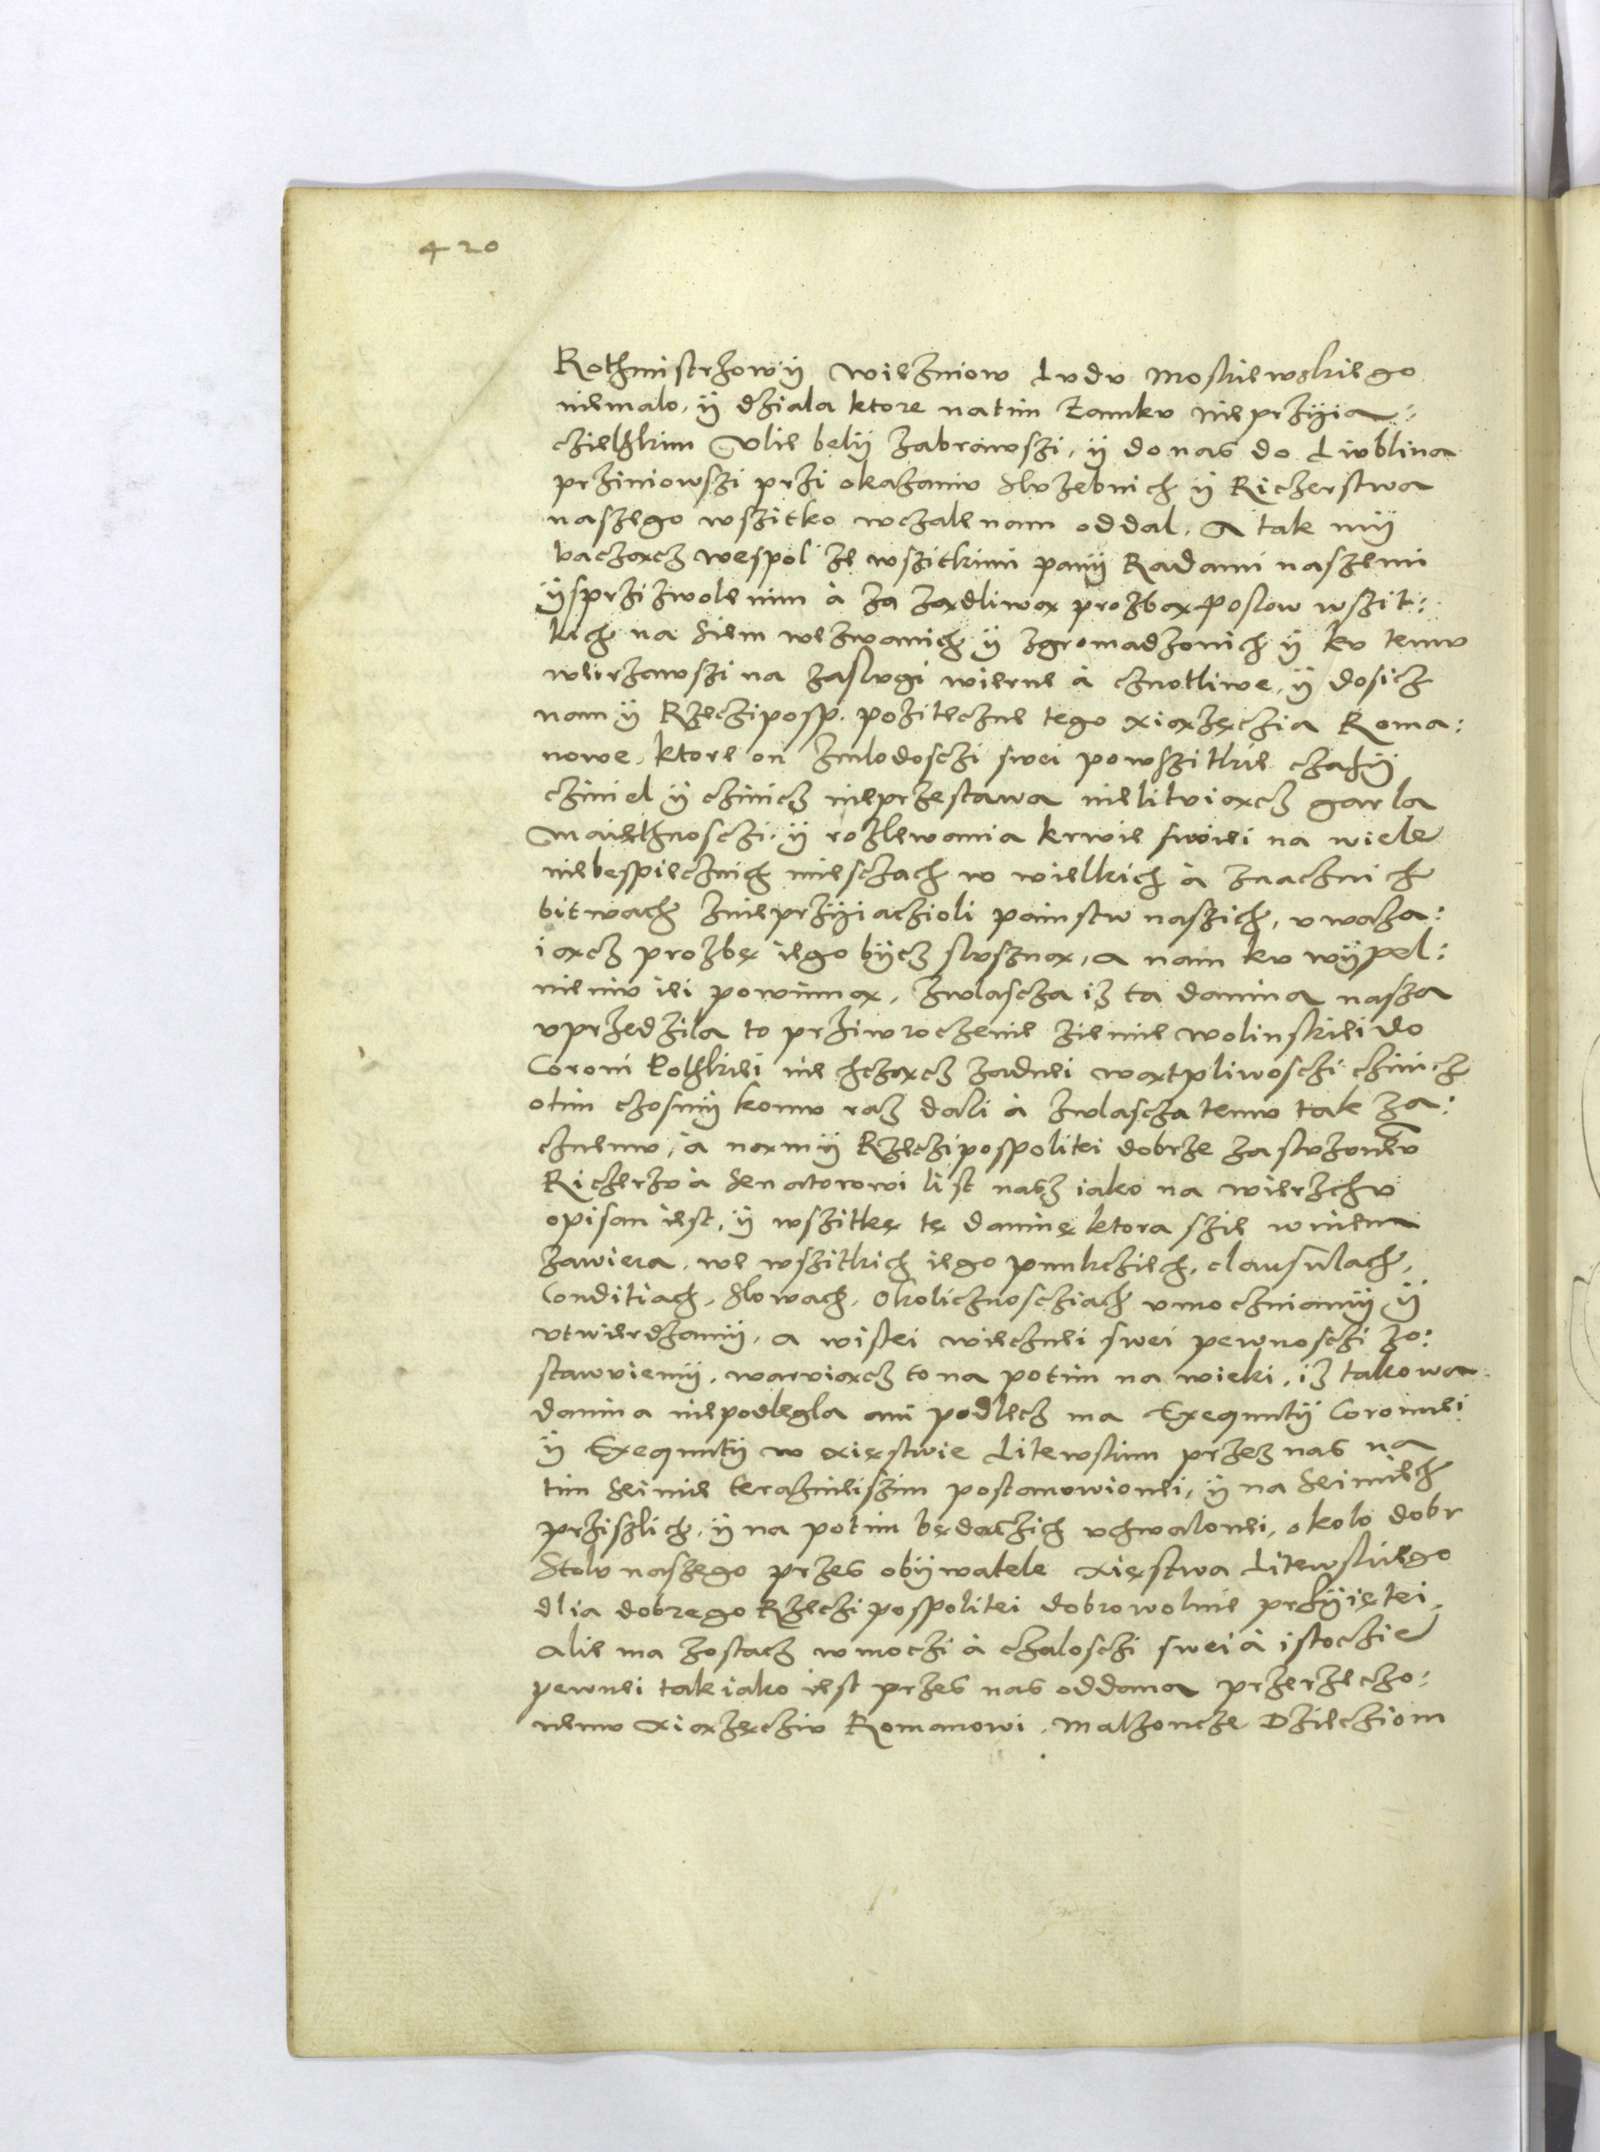 420
Rothmistrzowÿ wiezniow Ludu Moskiewskiego
niemalo, ÿ dziala ktore natim Zamku nieprzÿia:
czielskim Vlie belÿ zabrawszi, ÿ do nas do Liublina
prziniowszi przi okazaniu Sluzebnich ÿ Riczerstwa
naszego wszitko wczale nam oddal. A tak mÿ
baczacz wespol ze wszitkimi panÿ Radami naszemi
ÿ sprzizwolenim à za zadliwa prozba Poslow wszit:
kich na Siem wezwanich ÿ zgromadzonich ÿ ku temu
weirzawszi na zaslugi wierne à cznotliwe, ÿ dosicz
nam ÿ Rzecziposp. poziteczne tego xiazęczia Roma:
nowe, ktore on zmlodosczi swei powszitkie czasÿ
cziniel ÿ czinicz nieprzestawa nielituiacz garla
Maiethnosczi, ÿ rozlewania krwie swoiei na wiele
niebespiecznich miesczach w wielkich à znacznich
bitwach znieprzÿiaczioli painstw naszich, uwaza:
iacz prozbę iego bÿcz sluszna, a nam ku wÿpel:
nieniu iei powinna, zwlascza iz ta danina nasza
uprzedzila to przywroczenie ziemie wolinskiei do
Coroni Polskiei nie chczacz zadnei watpliwosczi czinicz
otim czosmÿ komu raz dali à zwlascza temu tak za:
cznemu, à namÿ Rzeczipospolitei dobrze zasluzonemu
Riczerzu à Senatorowi list nasz iako na wierzchu
opisan iest, ÿ wszitkę tę daninę ktora szie wniem
zawiera, we wszitkich iego punkcziech, clausulach,
Conditiach, Slowach, Okolicznoscziach umoczniamÿ ÿ
utwierdzamÿ, a wistei wiecznei swei pewnosczi zo:
stawuiemÿ, waruiacz to na potim na wieki, iz takowa
danina niepodlegla ani podlecz ma Exequutÿ Coronnei
ÿ Exequutÿ w xięstwie Litewskim przez nas na
tim Seimie teraznieiszim postanowionei, ÿ na Seimiech
przisźlich, ÿ na potim będaczich uchwalonei, okolo dobr
Stolu naszego przes obÿwatele xięstwa Litewskiego
dlia dobrego Rzeczipospolitei dobrowolnie przÿiętei,
Alie ma zostacz wmoczi à czalosczi swei à istoczie
pewnei tak iako iest przes nas oddana przerzeczo:
nemu xiazęcziu Romanowi, malzoncze Dziecziom